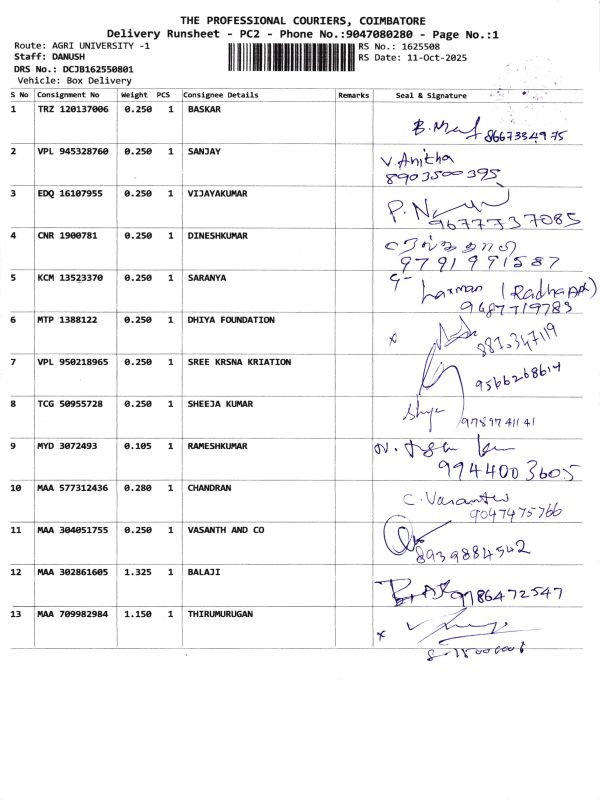 THE PROFESSIONAL COURIERS, COIMBATORE
Delivery Runsheet - PC2 - Phone No.:9047080280 - Page No.:1
Route: AGRI UNIVERSITY -1
RS No.: 1625508
Staff: DANUSH
RS Date: 11-Oct-2025
DRS No.: DCJB162550801
Vehicle: Box Delivery
S No Consignment No Weight PCS Consignee Details Remarks Seal & Signature
1 TRZ 120137006 0.250 1 BASKAR
8667334975
2 VPL 945328760 0.250 1 SANJAY
V. Anitha
8903500395
3 EDQ 16107955 0.250 1 VIJAYAKUMAR
9677737085
4 CNR 1900781 0.250 1 DINESHKUMAR
9791991587
5 KCM 13523370 0.250 1 SARANYA
Laxman (Radha
9487719783
6 MTP 1388122 0.250 1 DHIYA FOUNDATION
7 VPL 950218965 0.250 1 SREE KRSNA KRIATION
9566268614
8 TCG 50955728 0.250 1 SHEEJA KUMAR
9789741141
9 MYD 3072493 0.105 1 RAMESHKUMAR
9944003605
10 MAA 577312436 0.280 1 CHANDRAN
C. Vasantha
9047475766
11 MAA 304051755 0.250 1 VASANTH AND CO
8939884542
12 MAA 302861605 1.325 1 BALAJI
9786472547
13 MAA 709982984 1.150 1 THIRUMURUGAN